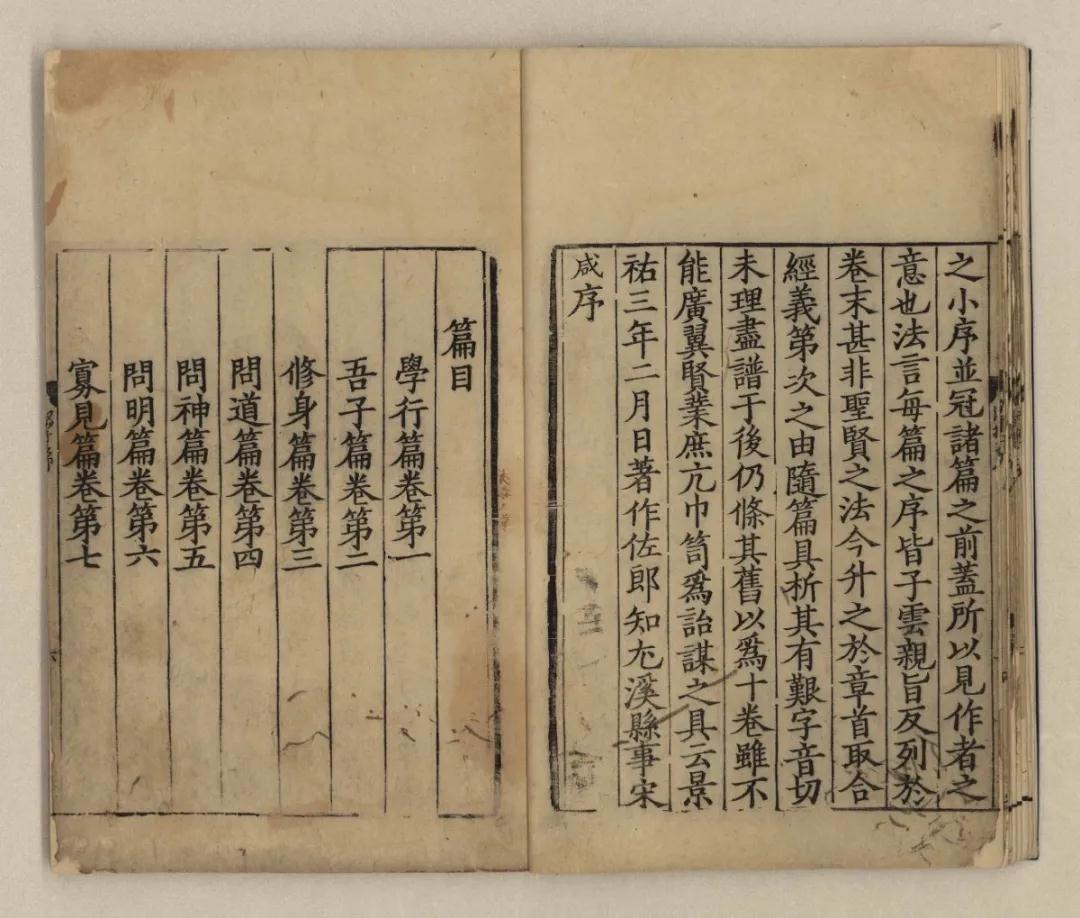 之小序並冠諸篇之前蓋所以見作者之
意也法言每篇之序皆子雲親旨反列於
卷末甚非聖賢之法今升之於章首取合
經義第次之由隨篇具析其有艱字音切
未理盡譜于後仍條其舊以爲十卷雖不
能廣翼賢業庶亢巾笥爲詒謀之具云景
祐三年二月日著作佐郎知尤溪縣事宋
咸序
篇目
學行篇卷第一
吾子篇卷第二
修身篇卷第三
問道篇卷第四
問神篇卷第五
問明篇卷第六
寡見篇卷第七